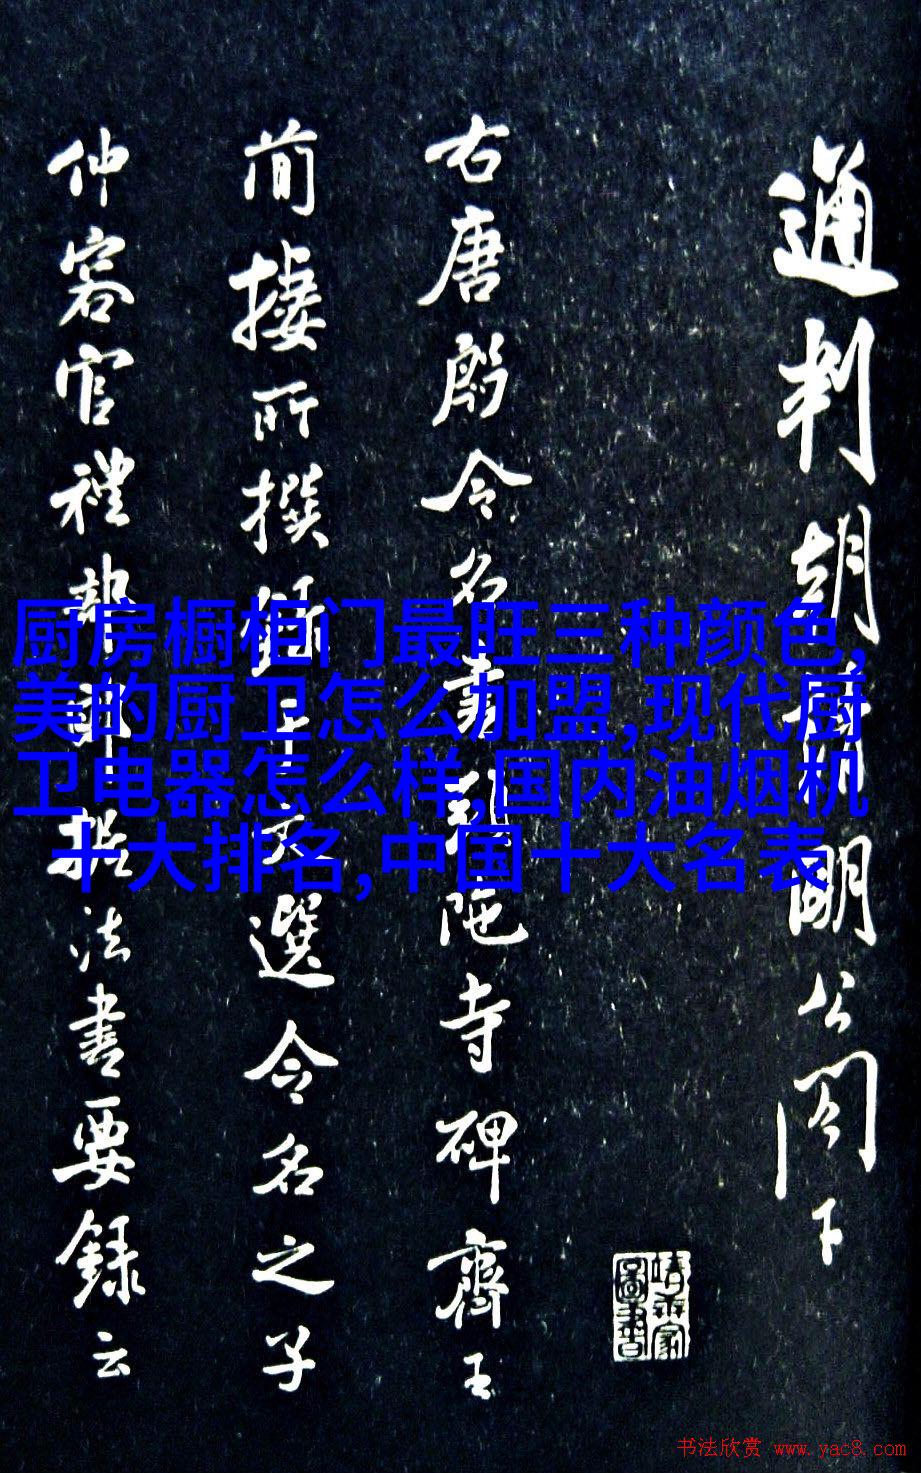 通判胡明公閣下
右唐殷令名書頭陁寺碑齊王
簡棲所撰錄在文選令名之子
仲容官禮部郎據法書要錄云
厨房橱柜门最旺三种颜色,
美的厨卫怎么加盟,现代厨
卫电器怎么样,国内油烟机
十大排名,中国十大名表
书法欣赏 www.yac8.com